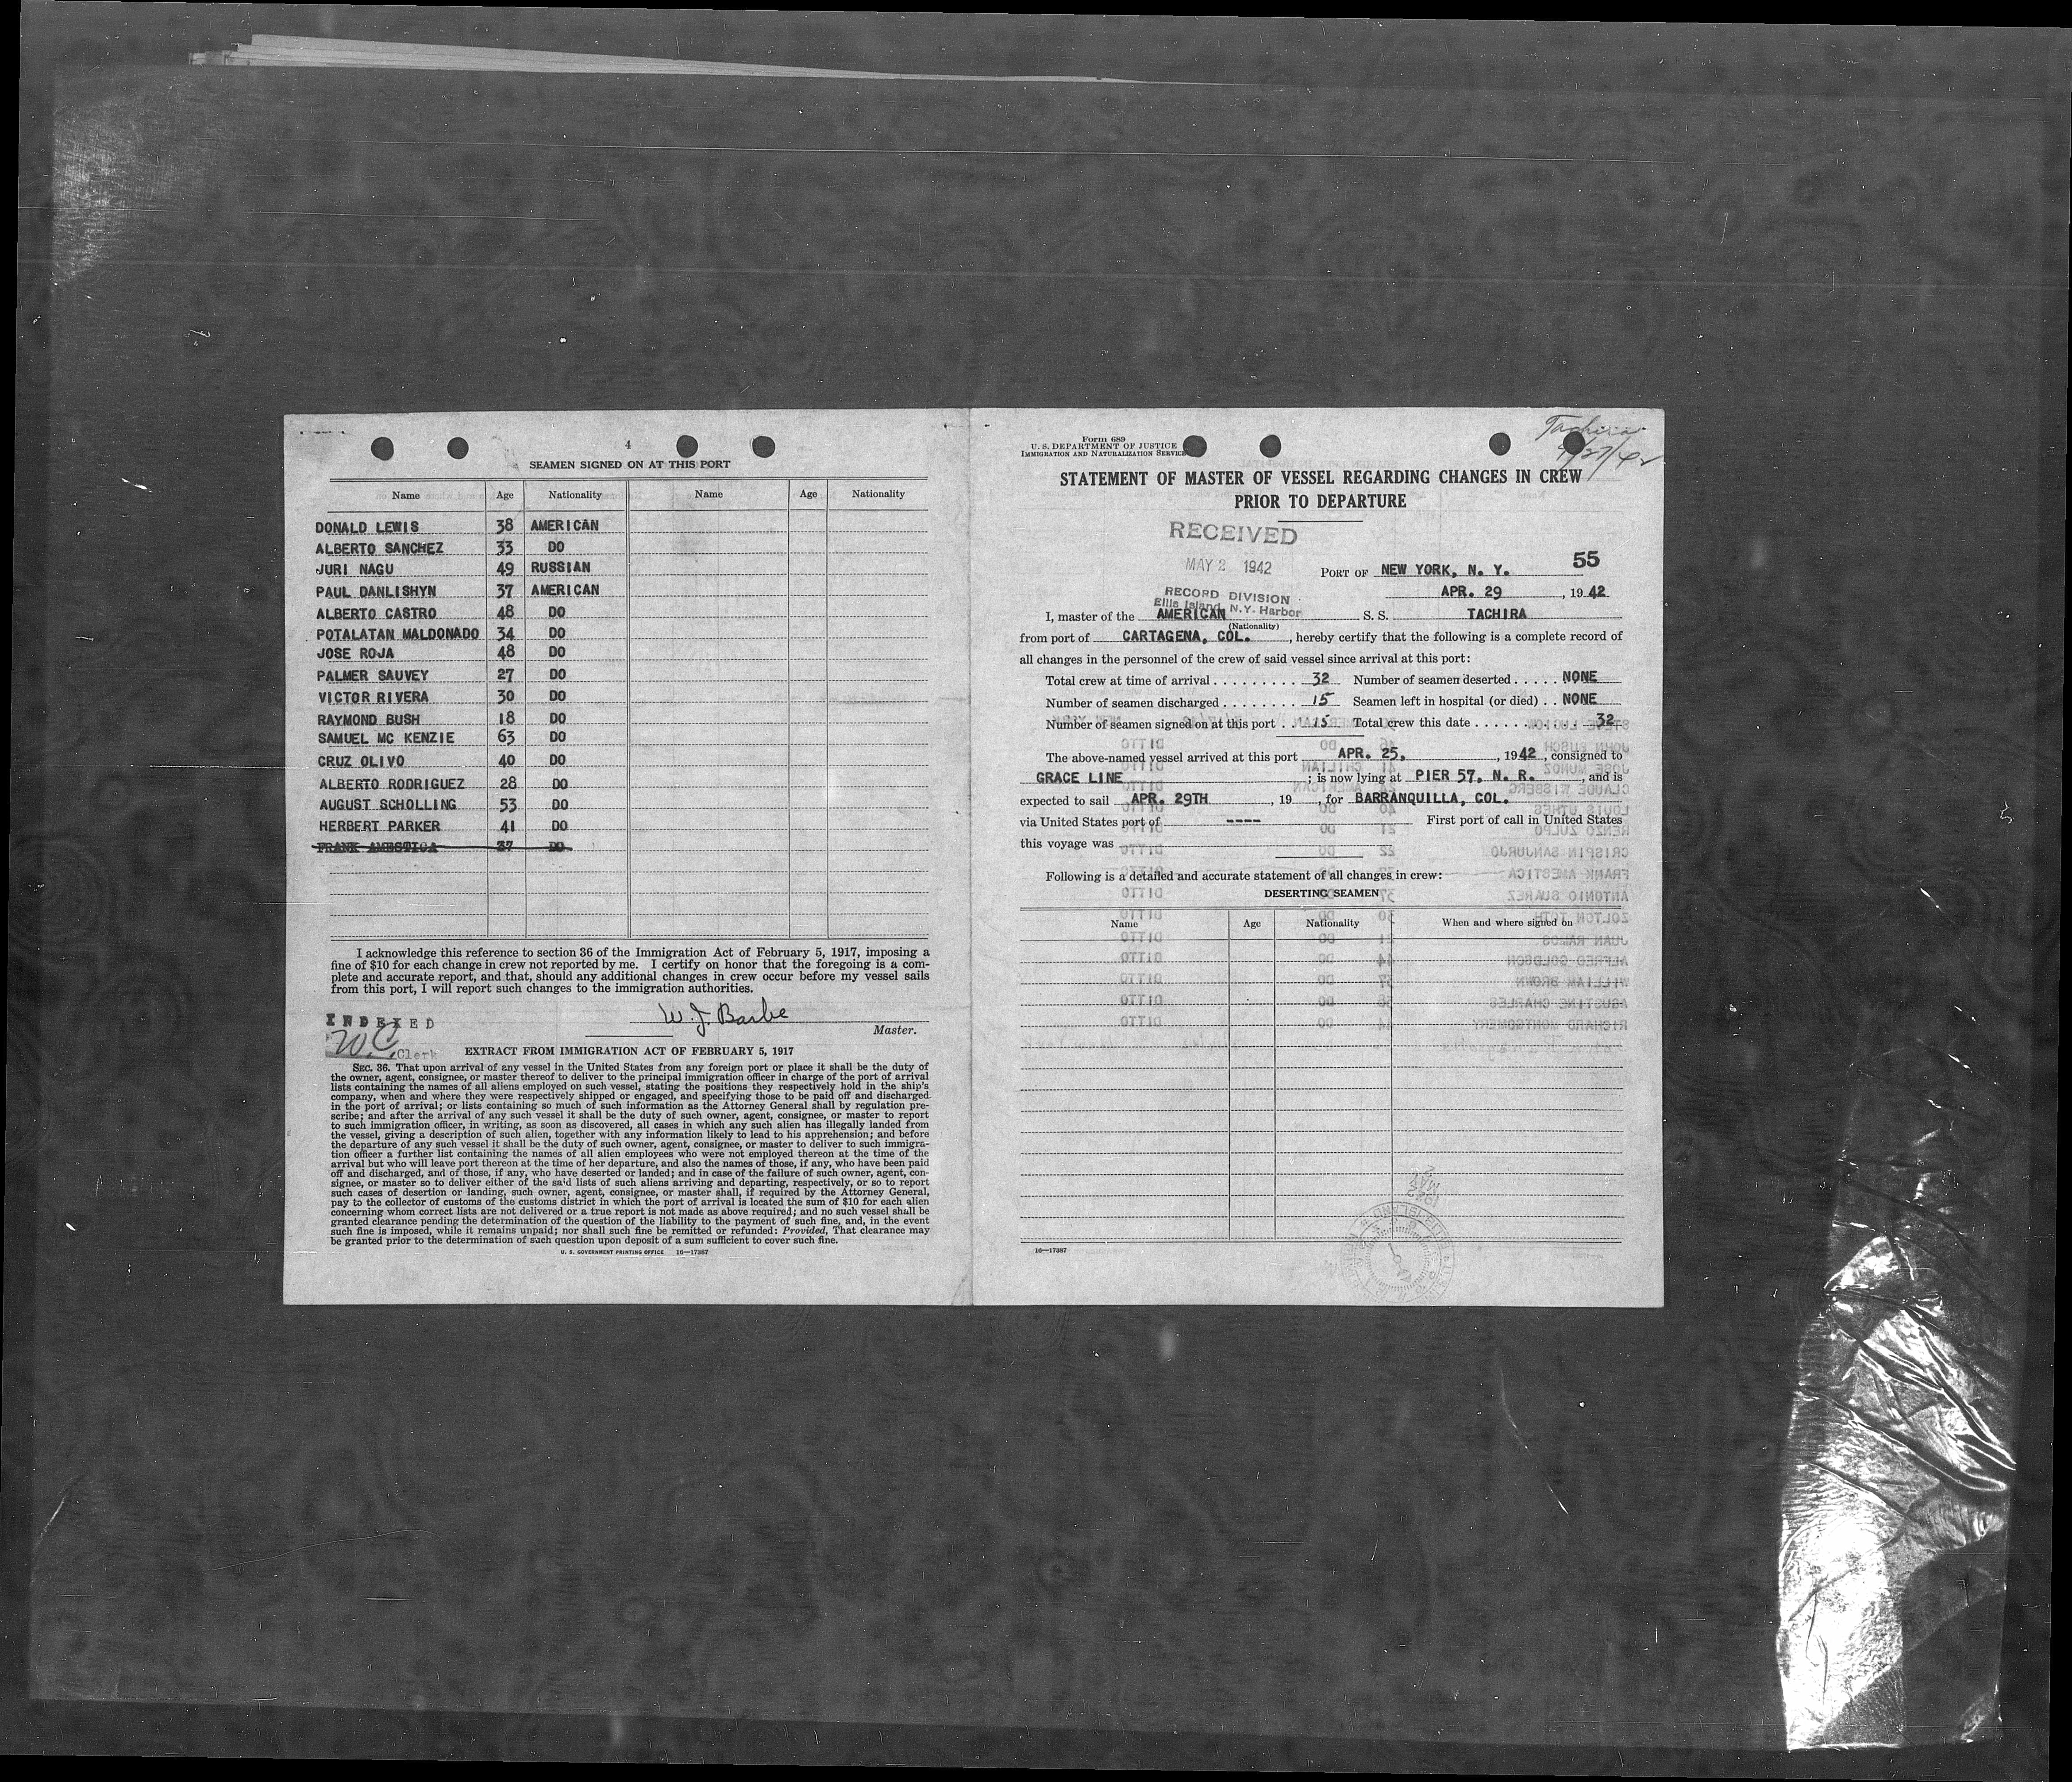 4
SEAMEN SIGNED ON AT THIS PORT
Name Age Nationality Name Age Nationality
DONALD LEWIS 38 AMERICAN
ALBERTO SANCHEZ 33 DO
JURI NAGU 49 RUSSIAN
PAUL DANLISHYN 37 AMERICAN
ALBERTO CASTRO 48 DO
POTALATAN MALDONADO 34 DO
JOSE ROJA 48 DO
PALMER SAUVEY 27 DO
VICTOR RIVERA 30 DO
RAYMOND BUSH 18 DO
SAMUEL MC KENZIE 63 DO
CRUZ OLIVO 40 DO
ALBERTO RODRIGUEZ 28 DO
AUGUST SCHOLLING 53 DO
HERBERT PARKER 41 DO
FRANK AMESTICA 37 DO
I acknowledge this reference to section 36 of the Immigration Act of February 5, 1917, imposing a
fine of $10 for each change in crew not reported by me. I certify on honor that the foregoing is a com-
plete and accurate report, and that, should any additional changes in crew occur before my vessel sails
from this port, I will report such changes to the immigration authorities.
W. J. Barbe
Master.
INDEXED
W.C. Clerk
EXTRACT FROM IMMIGRATION ACT OF FEBRUARY 5, 1917
SEC. 36. That upon arrival of any vessel in the United States from any foreign port or place it shall be the duty of
the owner, agent, consignee, or master thereof to deliver to the principal immigration officer in charge of the port of arrival
lists containing the names of all aliens employed on such vessel, stating the positions they respectively hold in the ship's
company, when and where they were respectively shipped or engaged, and specifying those to be paid off and discharged
in the port of arrival; or lists containing so much of such information as the Attorney General shall by regulation pre-
scribe; and after the arrival of any such vessel it shall be the duty of such owner, agent, consignee, or master to report
to such immigration officer, in writing, as soon as discovered, all cases in which any such alien has illegally landed from
the vessel, giving a description of such alien, together with any information likely to lead to his apprehension; and before
the departure of any such vessel it shall be the duty of such owner, agent, consignee, or master to deliver to such immigra-
tion officer a further list containing the names of all alien employees who were not employed thereon at the time of the
arrival but who will leave port thereon at the time of her departure, and also the names of those, if any, who have been paid
off and discharged, and of those, if any, who have deserted or landed; and in case of the failure of such owner, agent, con-
signee, or master so to deliver either of the said lists of such aliens arriving and departing, respectively, or so to report
such cases of desertion or landing, such owner, agent, consignee, or master shall, if required by the Attorney General,
pay to the collector of customs of the customs district in which the port of arrival is located the sum of $10 for each alien
concerning whom correct lists are not delivered or a true report is not made as above required; and no such vessel shall be
granted clearance pending the determination of the question of the liability to the payment of such fine, and, in the event
such fine is imposed, while it remains unpaid; nor shall such fine be remitted or refunded: Provided, That clearance may
be granted prior to the determination of such question upon deposit of a sum sufficient to cover such fine.
U. S. GOVERNMENT PRINTING OFFICE 16—17387
Tachira
4/27/42
Form 689
U. S. DEPARTMENT OF JUSTICE
IMMIGRATION AND NATURALIZATION SERVICE
STATEMENT OF MASTER OF VESSEL REGARDING CHANGES IN CREW
PRIOR TO DEPARTURE
RECEIVED
MAY 2 1942
RECORD DIVISION
Ellis Island, N.Y. Harbor
55
PORT OF NEW YORK, N. Y.
APR. 29, 1942
I, master of the AMERICAN S. S. TACHIRA
(Nationality)
from port of CARTAGENA, COL., hereby certify that the following is a complete record of
all changes in the personnel of the crew of said vessel since arrival at this port:
Total crew at time of arrival . . . . . . . . . 32 Number of seamen deserted . . . . . NONE
Number of seamen discharged . . . . . . . . 15 Seamen left in hospital (or died) . . NONE
Number of seamen signed on at this port . . 15 Total crew this date . . . . . . . . 32
The above-named vessel arrived at this port APR. 25, , 1942, consigned to
GRACE LINE ; is now lying at PIER 57, N. R. , and is
expected to sail APR. 29TH , 19 , for BARRANQUILLA, COL.
via United States port of ---- First port of call in United States
this voyage was
Following is a detailed and accurate statement of all changes in crew:
DESERTING SEAMEN
Name Age Nationality When and where signed on
16—17387